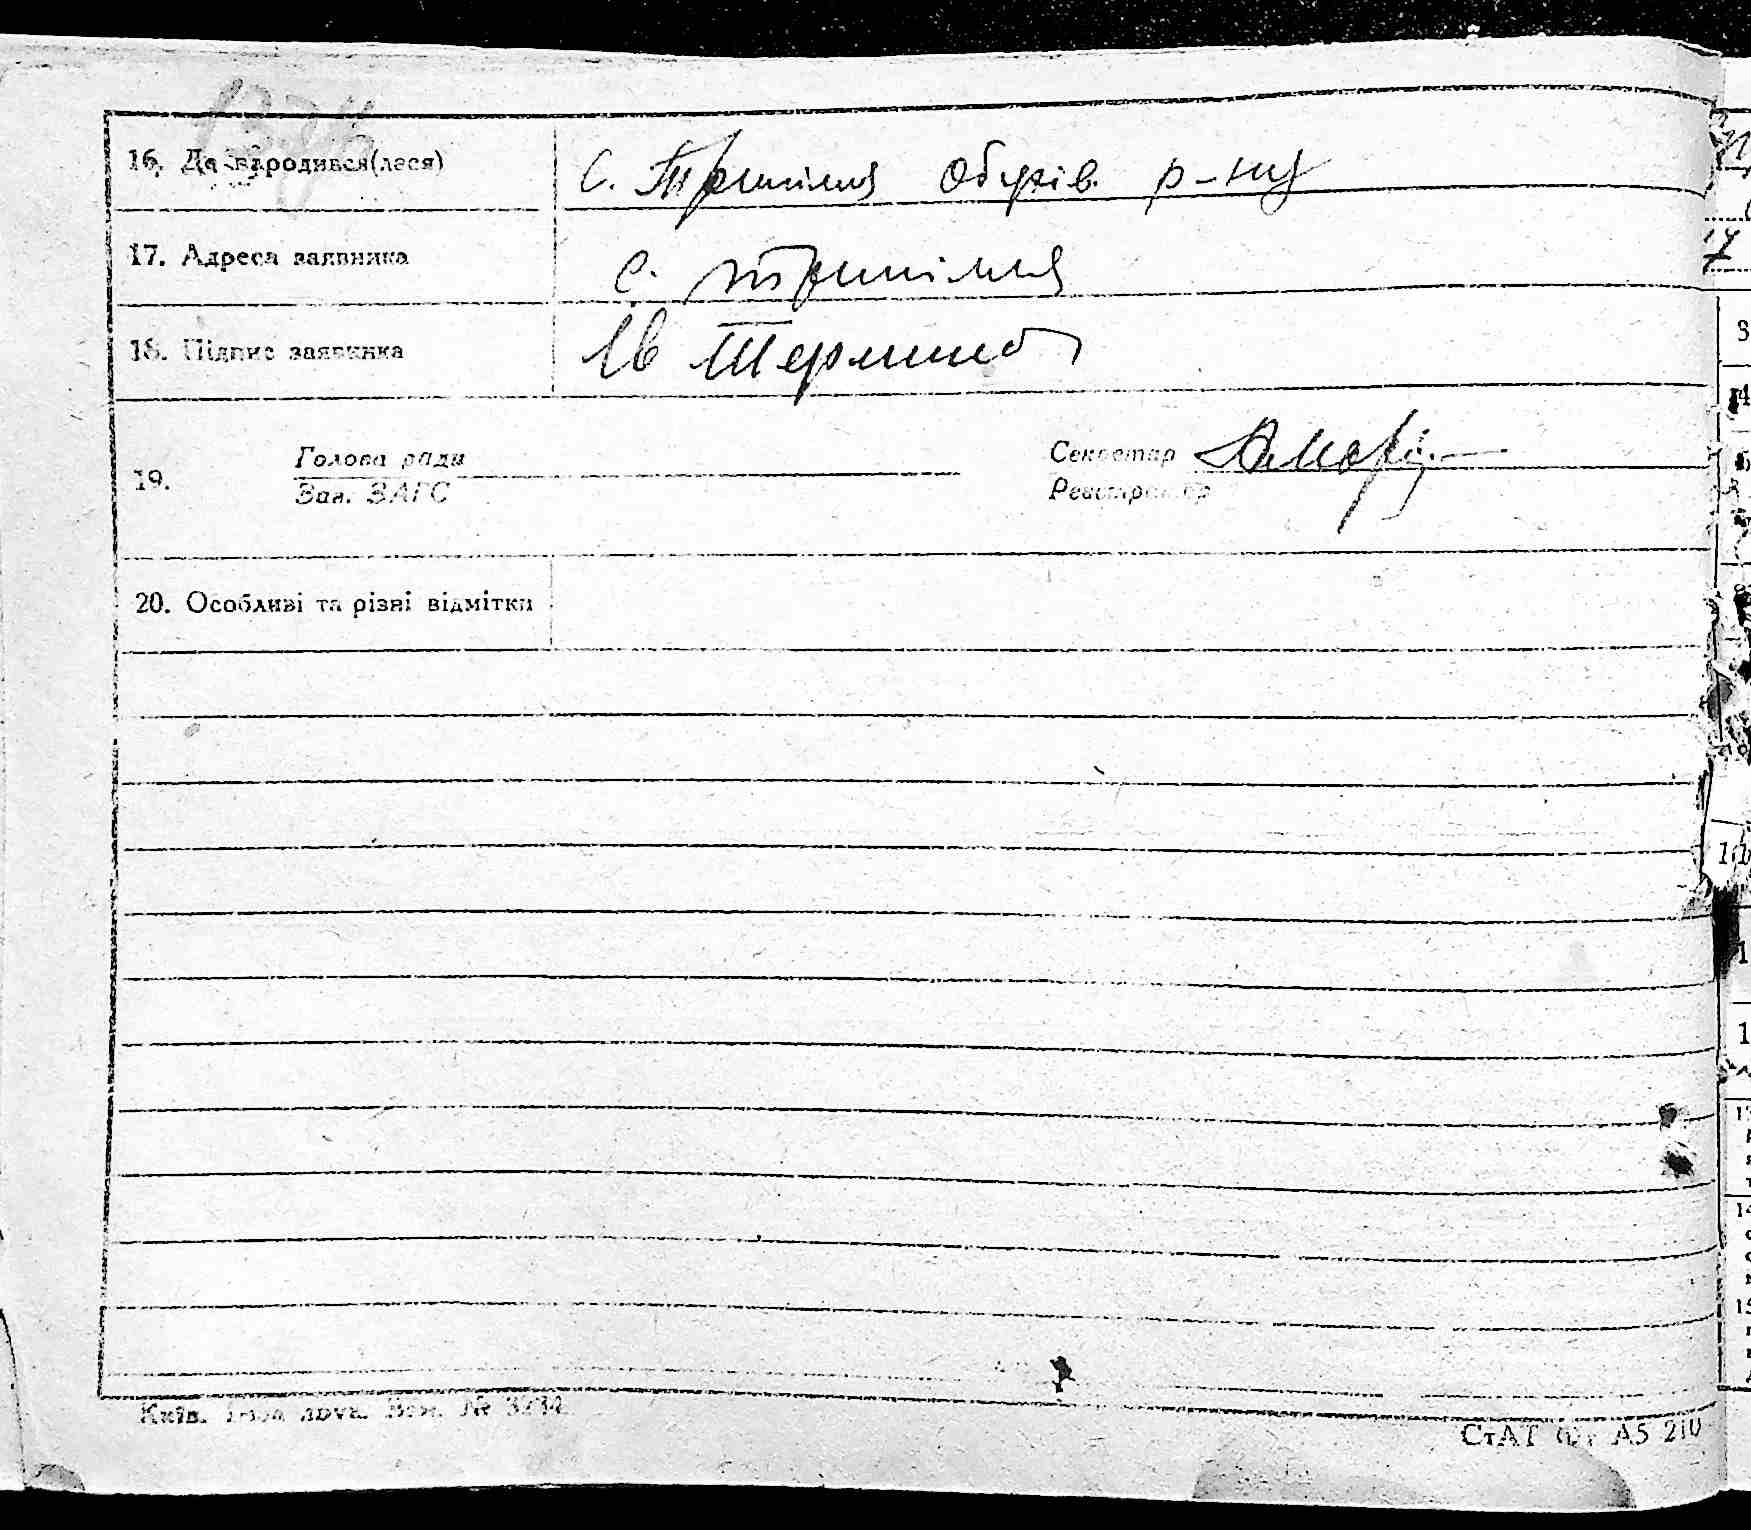 16. Де народився(лася) с. Трипілля Обухів. р-ну
17. Адреса заявника с. Трипілля
18. Підпис заявника Ів
19. Голова ради Секретар
Зав. ЗАГС Реєстратор
20. Особливі та різні відмітки
Київ. друк. Зам. №
СтАТ А5 210